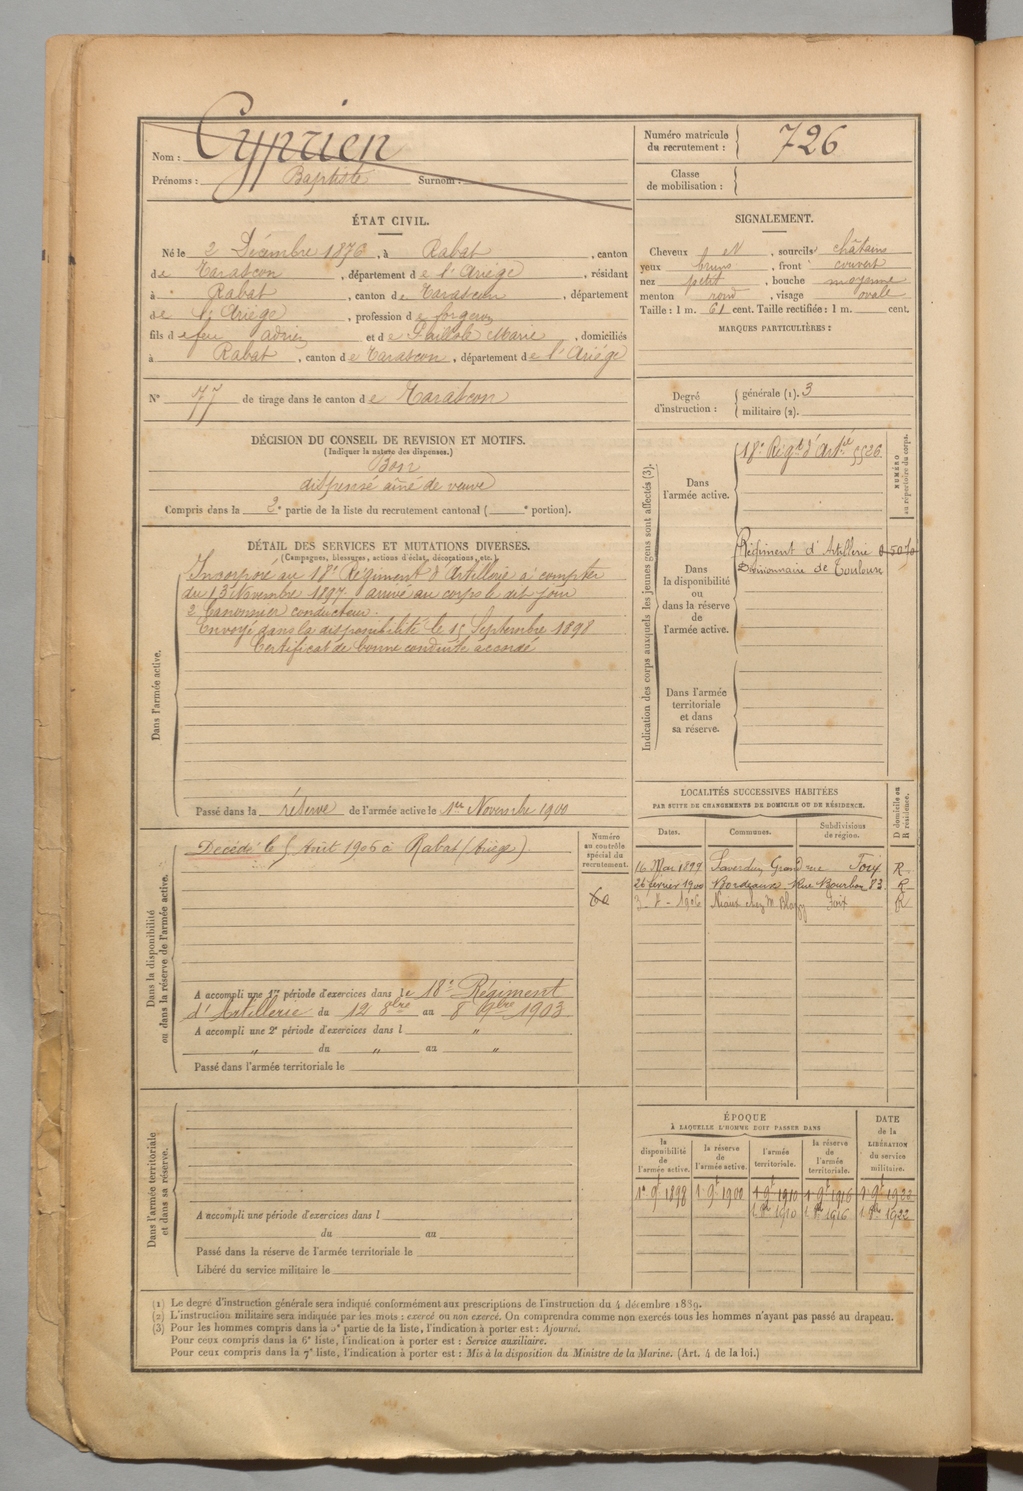 Nom : Cyprien
Prénoms : Baptiste Surnom :
Numéro matricule du recrutement : 726
Classe de mobilisation :
ÉTAT CIVIL.
Né le 2 Décembre 1876, à Rabat, canton
de Tarascon, département de l'Ariège, résidant
à Rabat, canton de Tarascon, département
de l'Ariège, profession de forgeron
fils de feu Adrien et de Marie, domiciliés
à Rabat, canton de Tarascon, département de l'Ariége
N° 77 de tirage dans le canton de Tarascon
SIGNALEMENT.
Cheveux et, sourcils châtains
yeux bruns, front couvert
nez petit, bouche moyenne
menton rond, visage ovale
Taille : 1 m. 61 cent. Taille rectifiée : 1 m. cent.
MARQUES PARTICULIÈRES :
Degré d'instruction : générale (1). 3
militaire (2).
DÉCISION DU CONSEIL DE REVISION ET MOTIFS.
(Indiquer la nature des dispenses.)
Bon
dispensé aîné de veuve
Compris dans la 2e partie de la liste du recrutement cantonal ( e portion).
DÉTAIL DES SERVICES ET MUTATIONS DIVERSES.
(Campagnes, blessures, actions d'éclat, décorations, etc.)
Dans l'armée active.
Incorporé au 18e Régiment d'Artillerie à compter
du 13 Novembre 1897. arrivé au corps le dit jour
2e Canonnier conducteur.
Envoyé dans la disponibilité le 15 Septembre 1898
Certificat de bonne conduite accordé
Passé dans la réserve de l'armée active le 1er Novembre 1900
Indication des corps auxquels les jeunes gens sont affectés (3).
NUMÉRO au répertoire du corps.
Dans l'armée active.
18e Régt d'Artie 5526
Dans la disponibilité ou dans la réserve de l'armée active.
Régiment d'Artillerie
Divisionnaire de Toulouse
Dans l'armée territoriale et dans sa réserve.
LOCALITÉS SUCCESSIVES HABITÉES
PAR SUITE DE CHANGEMENTS DE DOMICILE OU DE RÉSIDENCE.
D domicile ou R résidence.
Dates. Communes. Subdivisions de région.
16 Mai 1899 Saverdun, Grand rue Foix R
26 février 1900 Bordeaux Rue Bourbon 83 R
3-8-1906 Niaux chez M. Foix R
Dans la disponibilité ou dans la réserve de l'armée active.
Numéro au contrôle spécial du recrutement.
Décédé le 5 Août 1906 à Rabat (Ariège)
A accompli une 1re période d'exercices dans le 18e Régiment
d'Artillerie du 12 8bre au 8 9bre 1903
A accompli une 2e période d'exercices dans l "
" du " au "
Passé dans l'armée territoriale le
Dans l'armée territoriale et dans sa réserve.
A accompli une période d'exercices dans l
du au
Passé dans la réserve de l'armée territoriale le
Libéré du service militaire le
ÉPOQUE
À LAQUELLE L'HOMME DOIT PASSER DANS
la disponibilité de l'armée active. la réserve de l'armée active. l'armée territoriale. la réserve de l'armée territoriale.
DATE de la LIBÉRATION du service militaire.
1r 9e 1898 1r 9e 1900 1r 9e 1910 1r 9e 1916 1r 9e 1922
1 8bre 1910 1 8bre 1916 1 8bre 1922
(1) Le degré d'instruction générale sera indiqué conformément aux prescriptions de l'instruction du 4 décembre 1889.
(2) L'instruction militaire sera indiquée par les mots : exercé ou non exercé. On comprendra comme non exercés tous les hommes n'ayant pas passé au drapeau.
(3) Pour les hommes compris dans la 5e partie de la liste, l'indication à porter est : Ajourné.
Pour ceux compris dans la 6e liste, l'indication à porter est : Service auxiliaire.
Pour ceux compris dans la 7e liste, l'indication à porter est : Mis à la disposition du Ministre de la Marine. (Art. 4 de la loi.)